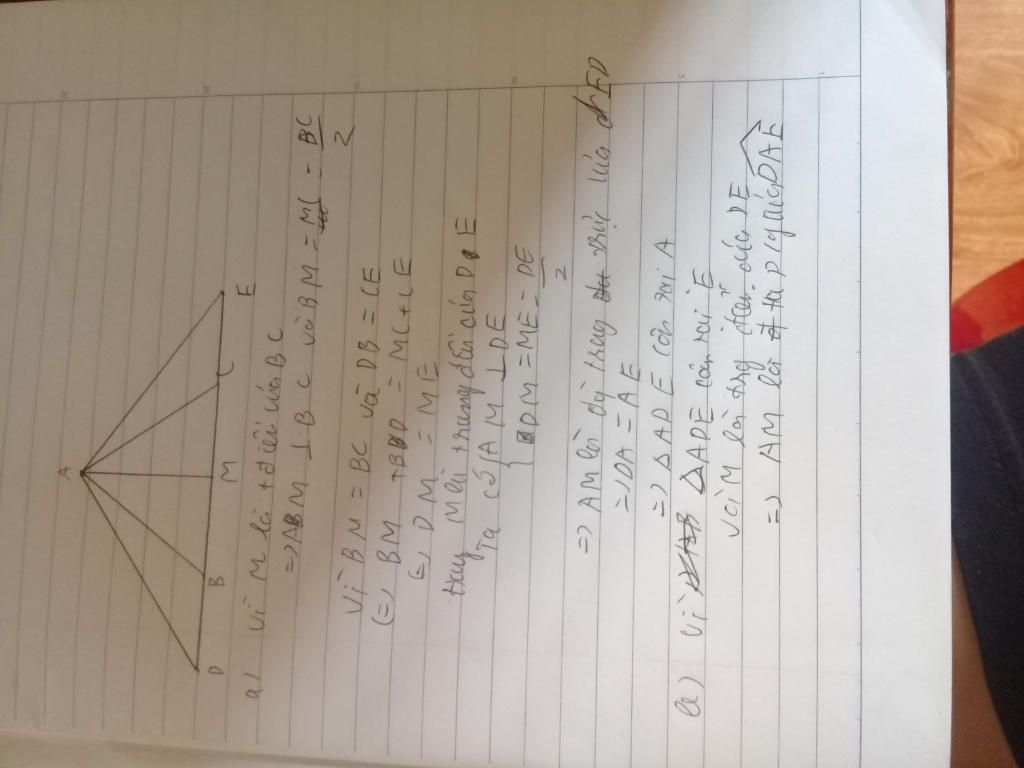 A
D B M C E
a) Vì M là t điểm của BC
=> AM ⊥ BC và BM = MC = BC/2
Vì BM = BC và DB = CE
(=) BM + BD = MC + CE
(=) DM = ME
Hay M là trung điểm của DE
Ta có { AM ⊥ DE
DM = ME = DE/2
=> AM là đg trung trực của ED
=> DA = AE
=> △ADE cân tại A
Vì △ADE cân tại E
với M là trng điểm của DE
=> AM là tia p/g của DAE